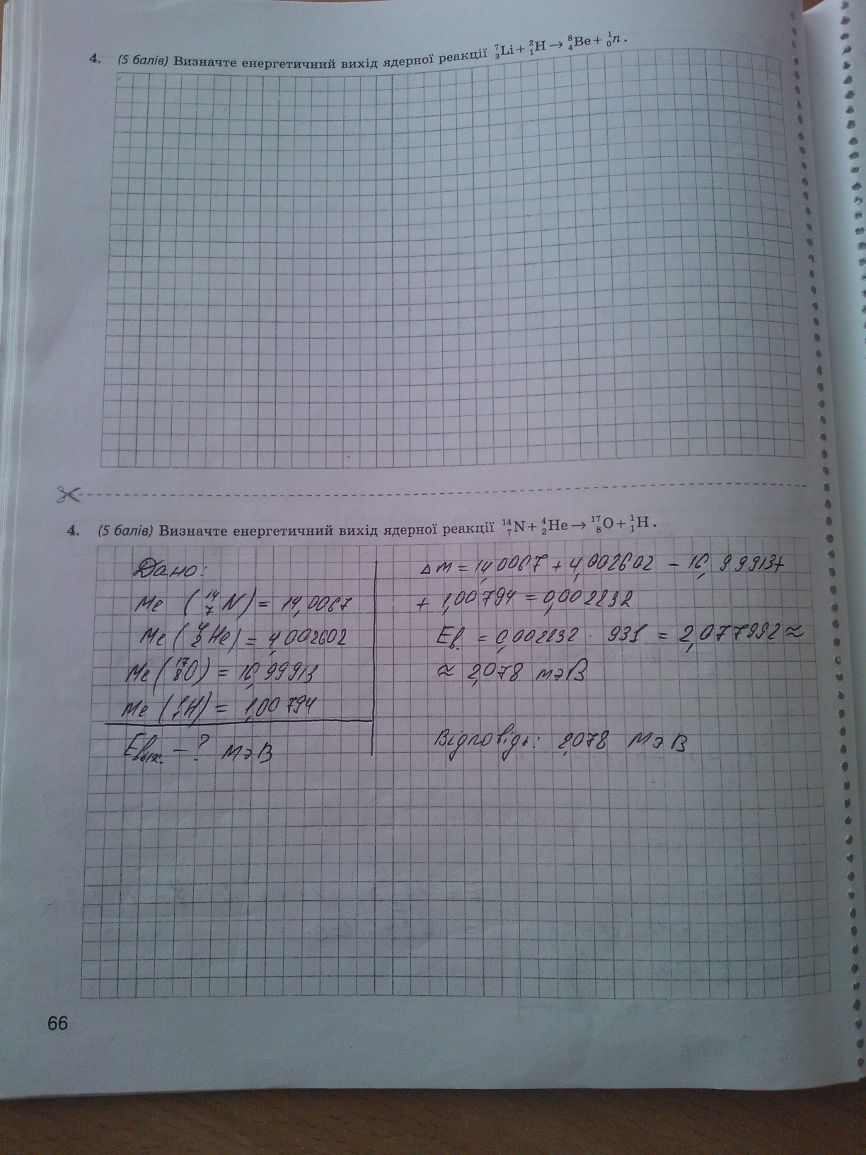 4. (5 балів) Визначте енергетичний вихід ядерної реакції ⁷₃Li + ²₁H → ⁸₄Be + ¹₀n.
4. (5 балів) Визначте енергетичний вихід ядерної реакції ¹⁴₇N + ⁴₂He → ¹⁷₈O + ¹₁H.
Дано:
Me (¹⁴₇N) = 14,0067
Me (⁴₂He) = 4,002602
Me (¹⁷₈O) = 16,99913
Me (¹₁H) = 1,00794
Eвих. – ? МэВ
Δm = 14,0067 + 4,002602 – 16,99913+
+ 1,00794 = 0,002232
Eв. = 0,002232 · 931 = 2,077992 ≈
≈ 2,078 мэВ
Відповідь: 2,078 МэВ
66